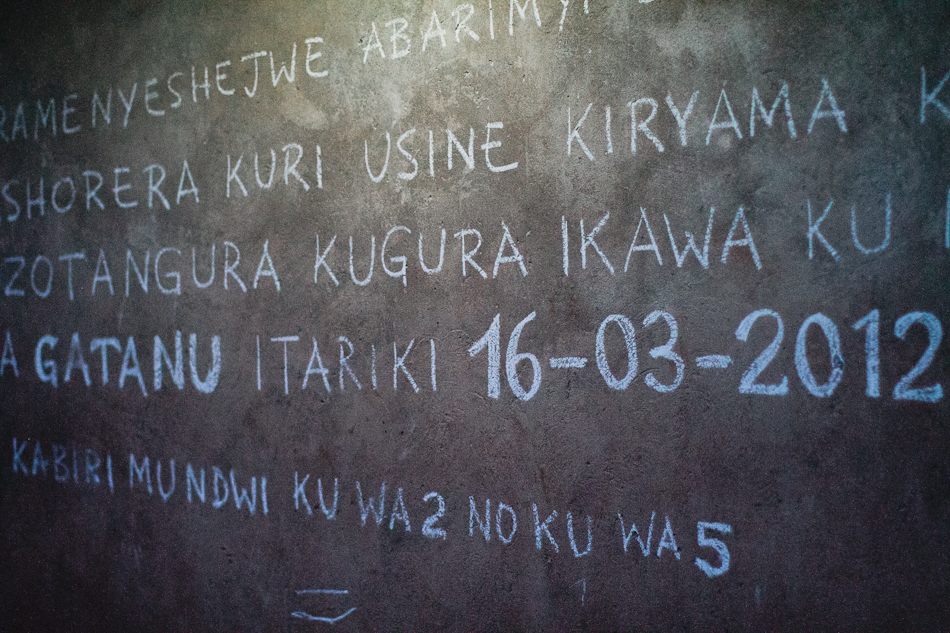 RAMENYESHEJWE ABARIMYI
SHORERA KURI USINE KIRYAMA K
ZOTANGURA KUGURA IKAWA KU
A GATANU ITARIKI 16-03-2012
KABIRI MUNDWI KU WA 2 NO KU WA 5